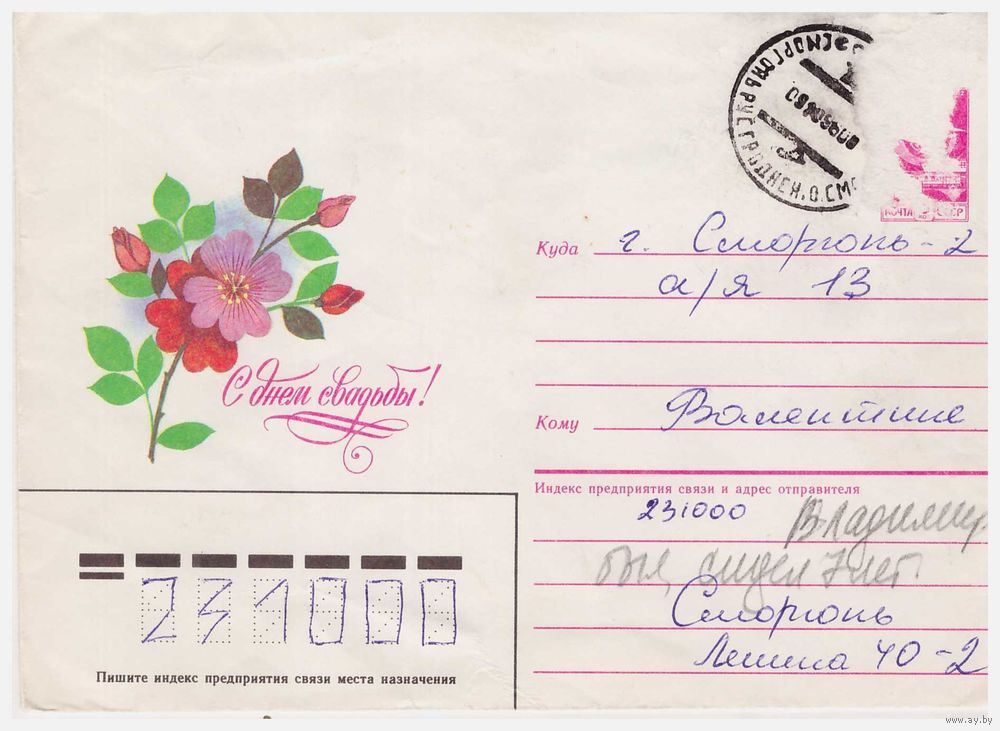 СМОРГОНЬ РУС ГРОДНЕН. О. СМО
ПОЧТА СССР
Куда г. Сморгонь-2
а/я 13
С днем свадьбы!
Кому Валентине
Индекс предприятия связи и адрес отправителя
231000 Владимир
был, сидел 7 лет
Сморгонь
Ленина 40-2
231000
Пишите индекс предприятия связи места назначения
www.ay.by